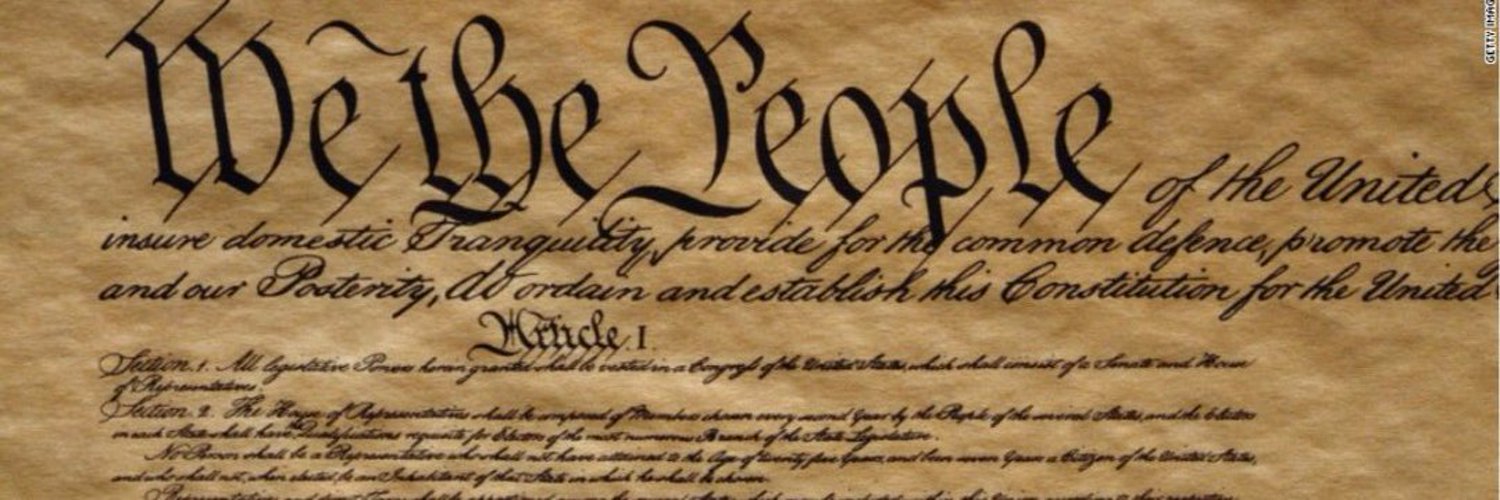 We the People of the United
insure domestic Tranquility, provide for the common defence, promote the
and our Posterity, do ordain and establish this Constitution for the United
Article. I.
Section. 1. All legislative Powers herein granted shall be vested in a Congress of the United States, which shall consist of a Senate and House
of Representatives.
Section. 2. The House of Representatives shall be composed of Members chosen every second Year by the People of the several States, and the Electors
in each State shall have Qualifications requisite for Electors of the most numerous Branch of the State Legislature.
No Person shall be a Representative who shall not have attained to the Age of twenty five Years, and been seven Years a Citizen of the United States,
and who shall not, when elected, be an Inhabitant of that State in which he shall be chosen.
GETTY IMAG